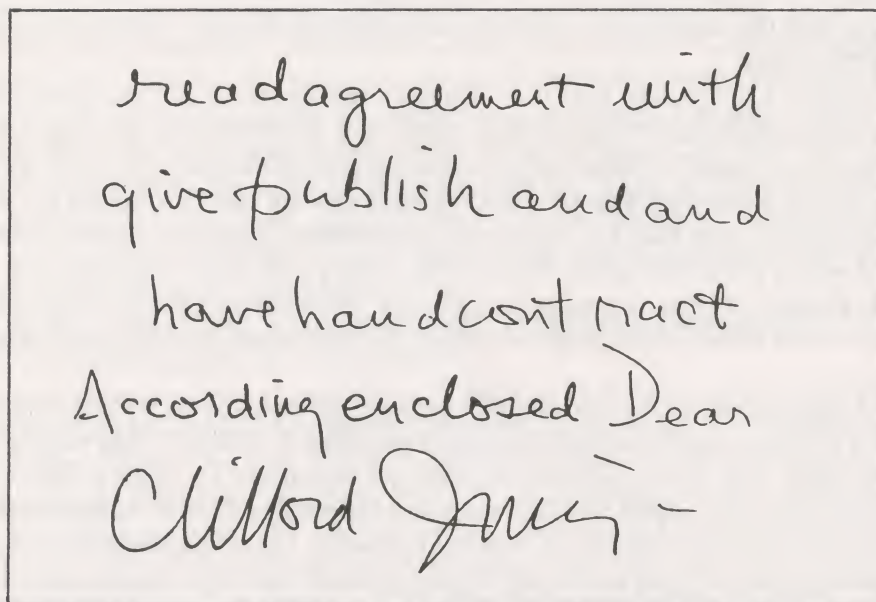 read agreement with
give publish and and
have hand contract
According enclosed Dear
Clifford Irving